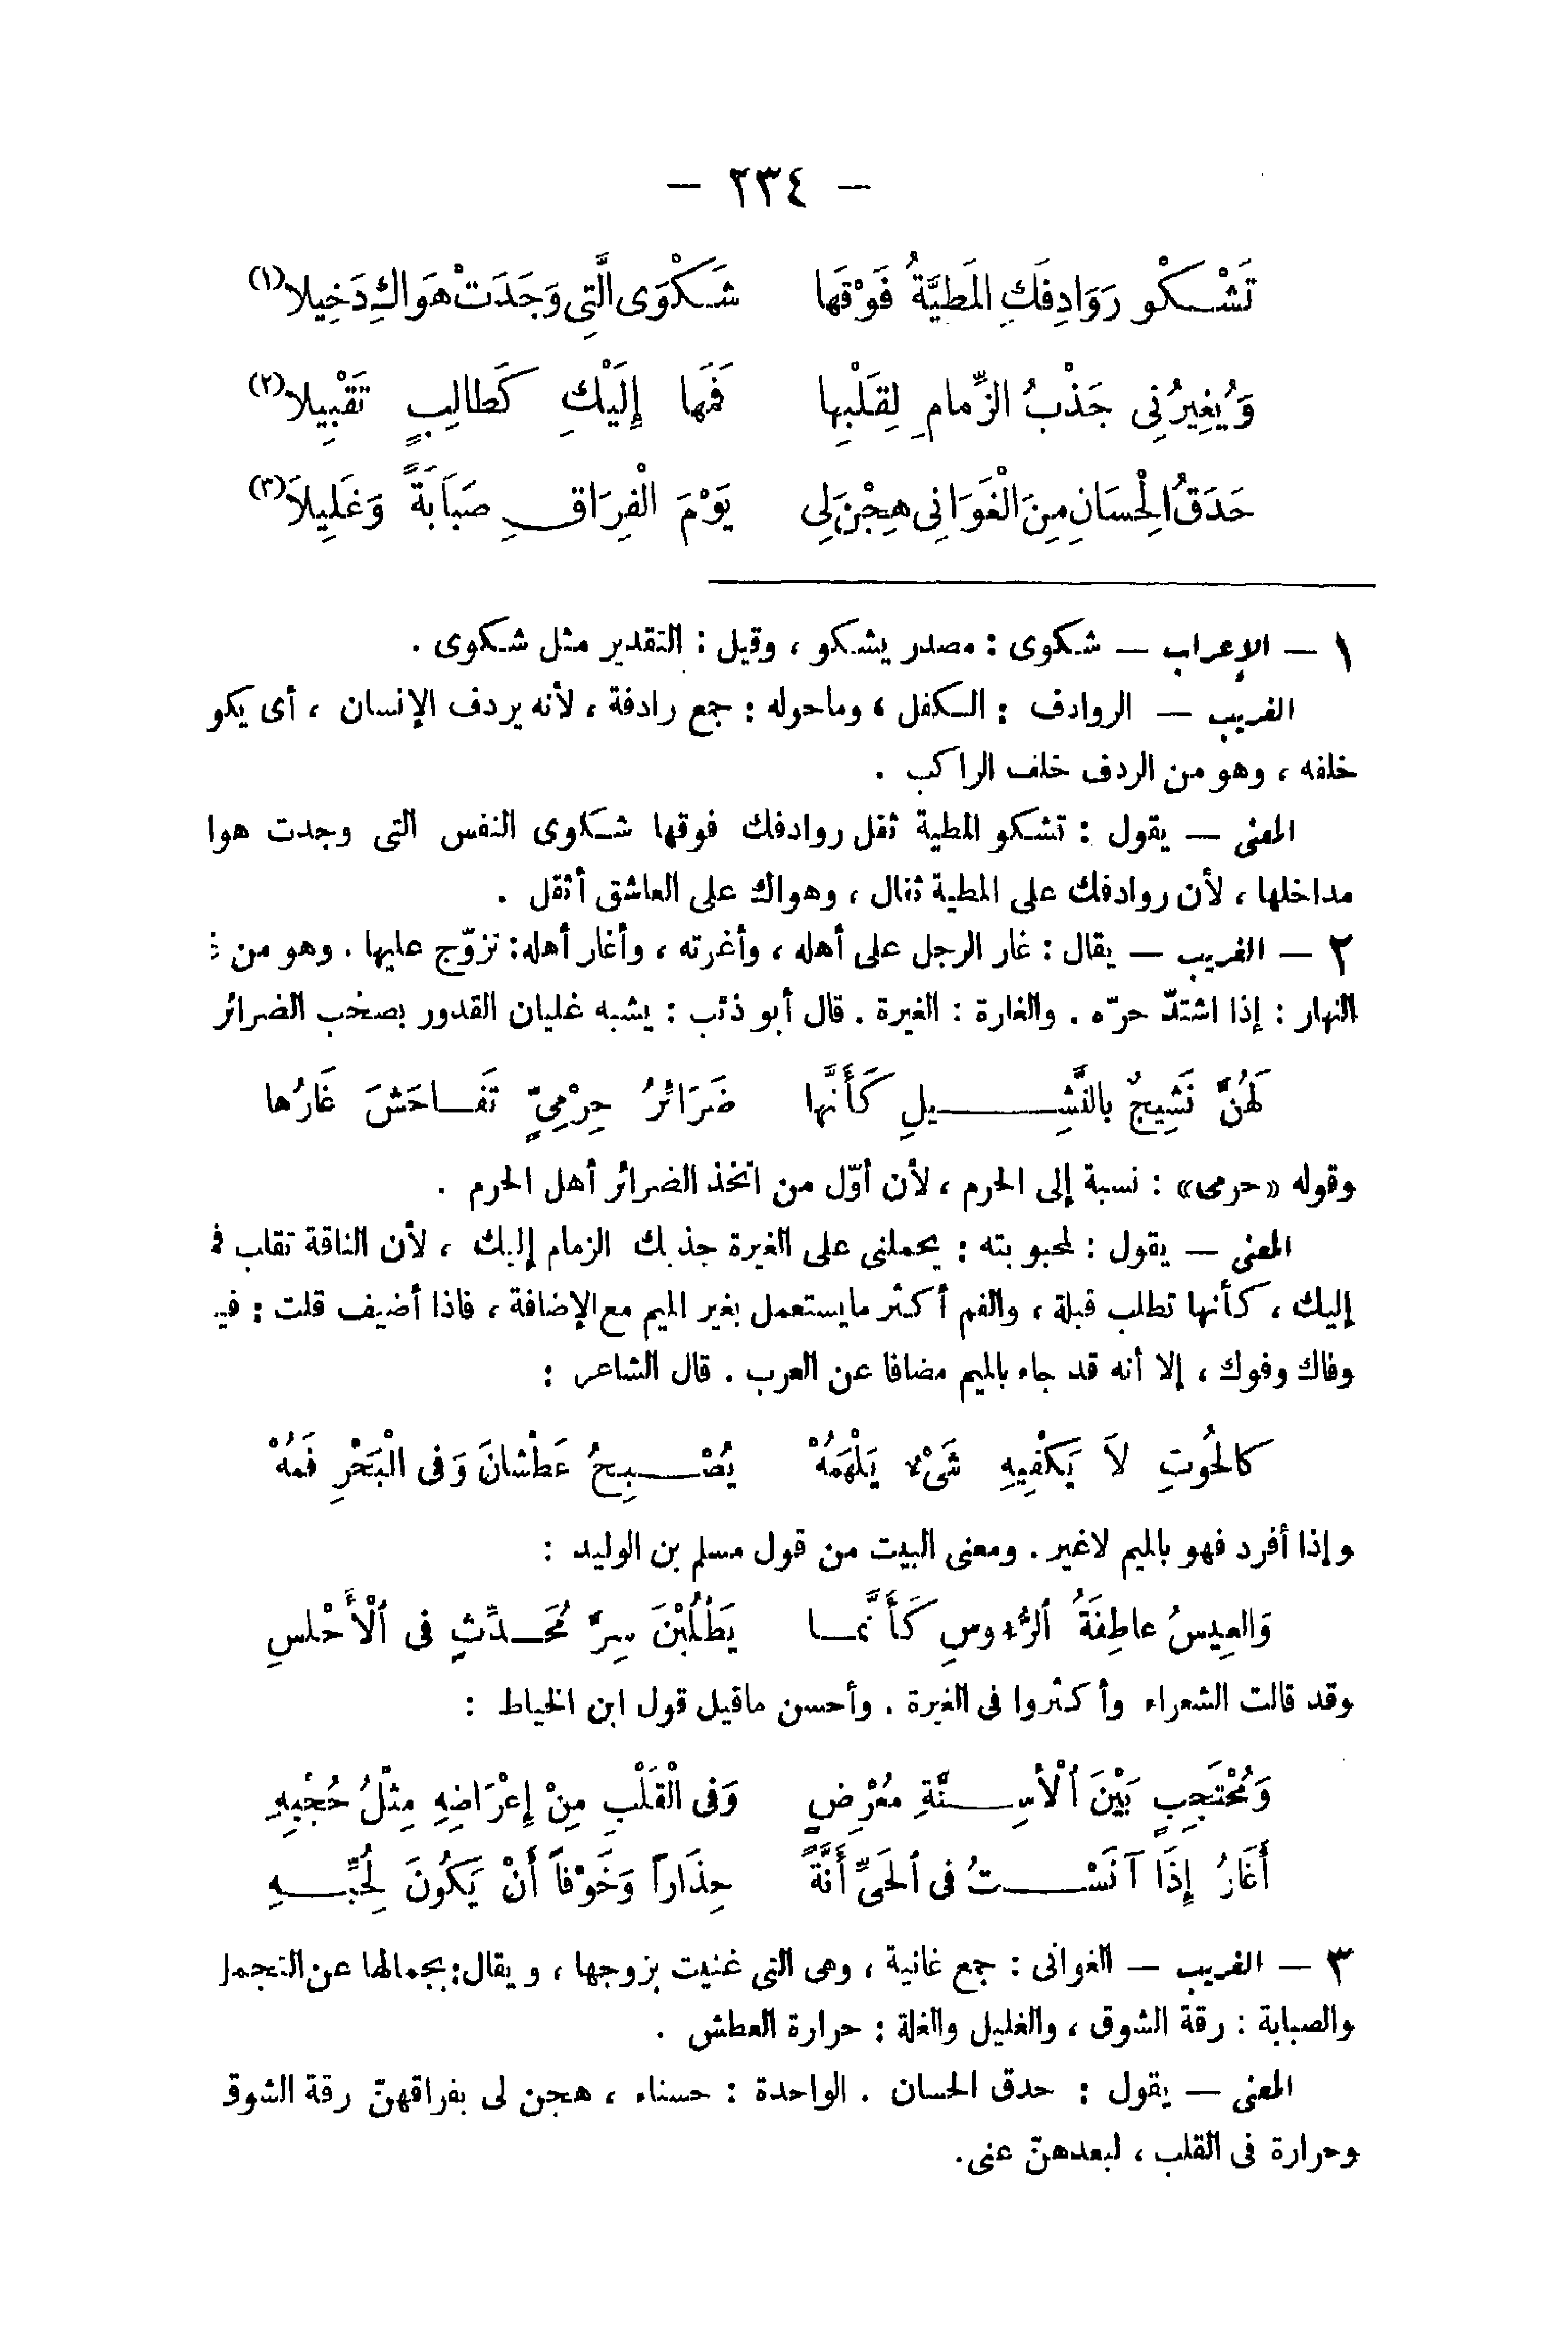 — ٢٣٤ —
تَشْكُو رَوَادِفَكِ المَطيَّةُ فَوْقَهَا شَكْوَى الَّتِي وَجَدَتْ هَوَاكِ دَخِيلا(١)
وَيُغِيرُنِى جَذْبُ الزِّمامِ لِقَلْبِها فَمَهَا إِلَيْكِ كَطالِبٍ تَقْبِيلا(٢)
حَدَقُ الْحِسَانِ مِنَ الْغَوَانِى هِجْنَ لِى يَوْمَ الْفِرَاقِ صَبَابَةً وَغَلِيلاَ(٣)
١ — الإعراب — شكوى : مصدر يشكو ، وقيل : التقدير مثل شكوى .
الغريب — الروادف : الكفل ، وماحوله : جمع رادفة ، لأنه يردف الإنسان ، أى يكو
خلفه ، وهو من الردف خلف الراكب .
المعنى — يقول : تشكو المطية ثقل روادفك فوقها شكوى النفس التى وجدت هوا
مداخلها ، لأن روادفك على المطية ثقال ، وهواك على العاشق أثقل .
٢ — الغريب — يقال : غار الرجل على أهله ، وأغرته ، وأغار أهله: تزوّج عليها . وهو من
النهار : إذا اشتدّ حرّه . والغارة : الغيرة . قال أبو ذئب : يشبه غليان القدور بصخب الضرائر
لَهُنَّ نَشِيجٌ بالنَّشِيلِ كَأَنَّها ضَرَائرُ حِرْمِيٍّ تَفَاحَشَ غَارُها
وقوله «حرمى» : نسبة إلى الحرم ، لأن أوّل من اتخذ الضرائر أهل الحرم .
المعنى — يقول : لمحبوبته : يحملنى على الغيرة جذبك الزمام إليك ، لأن الناقة تقلب ف
إليك ، كأنها تطلب قبلة ، والفم أكثر مايستعمل بغير الميم مع الإضافة ، فاذا أضيف قلت : في
وفاك وفوك ، إلا أنه قد جاء بالميم مضافا عن العرب . قال الشاعر :
كالحُوتِ لاَ يَكْفِيهِ شَىْءٌ يَلْهَمُهْ يُصْبِحُ عَطْشانَ وَفى الْبَحْرِ فَمُهْ
وإذا أفرد فهو بالميم لاغير . ومعنى البيت من قول مسلم بن الوليد :
وَالعِيسُ عاطِفَةُ الرُّءوسِ كَأَنَّما يَطْلُبْنَ سِرَّ مُحَدِّثٍ فى الْأَحْلسِ
وقد قالت الشعراء وأكثروا فى الغيرة . وأحسن ماقيل قول ابن الخياط :
وَمُحْتَجِبٍ بَيْنَ الْأَسِنَّةِ مُعْرِضٍ وَفى الْقَلْبِ مِنْ إِعْرَاضِهِ مِثْلُ حُجْبِهِ
أَغَارُ إِذَا آنَسْتُ فى الحَىِّ أَنَّةً حِذَاراً وَخَوْفاً أَنْ يَكُونَ لِحُبِّهِ
٣ — الغريب — الغوانى : جمع غانية ، وهى التى غنيت بزوجها ، ويقال: بجمالها عن التجمل
والصبابة : رقة الشوق ، والغليل والغلة : حرارة العطش .
المعنى — يقول : حدق الحسان . الواحدة : حسناء ، هجن لى بفراقهنّ رقة الشوق
وحرارة فى القلب ، لبعدهنّ عنى.